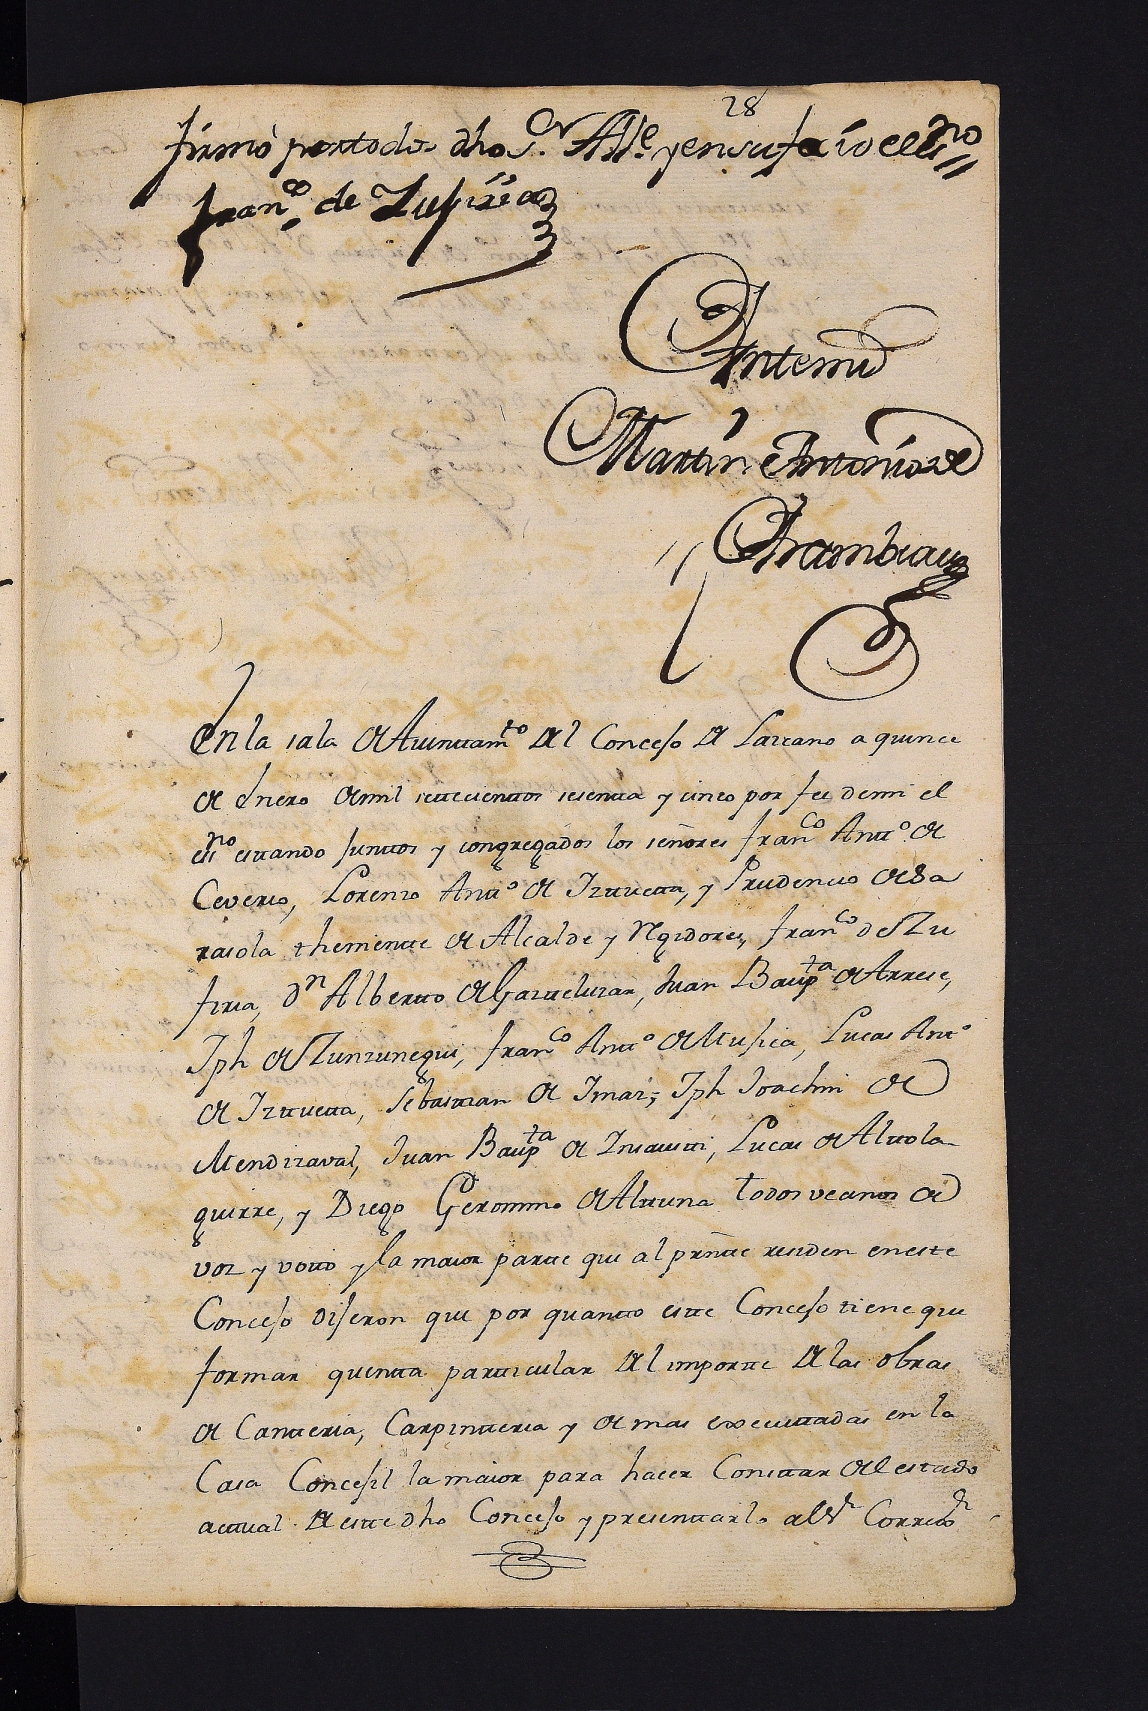 28
firmò por todos dho S.or Alle. y en su fee io el es.no
Fran.co de Zufiria
Antemi
Martin Antonio de
Arambiau
En la sala de Aiunttam.to del Concejo de Lazcano a quince
de Enero de mil settecienttos sesentta y cinco por fee de mi el
es.no esttando Junttos y congregados los señores fran.co Antt.o de
Ceverio, Lorenzo Antt.o de Izttuetta, y Prudencio de Sa
rasola theniente de Alcalde y Regidores, fran.co de Zu
firia, D.n Albertto de Gartteluzar, Juan Baup.ta de Arrese,
Jph de Zunzunegui, fran.co Antt.o de Musica, Lucas Antt.o
de Izttuetta, Sebasttian de Imaz, Jph Joachin de
Mendizaval, Juan Baup.ta de Insaustti, Lucas de Alttola-
guirre, y Diego Geronimo de Alttuna todos vecinos de
voz y votto y la maior partte que al presntte residen en este
Concejo dijeron que por quantto estte Concejo tiene que
formar quentta partticular del importte de las obras
de Cantteria, Carpintteria y demas executtadas en la
Casa Concejil la maior para hacer Consttar del estado
acttual de estte dho Concejo y presenttarlo al S.r Correo.r